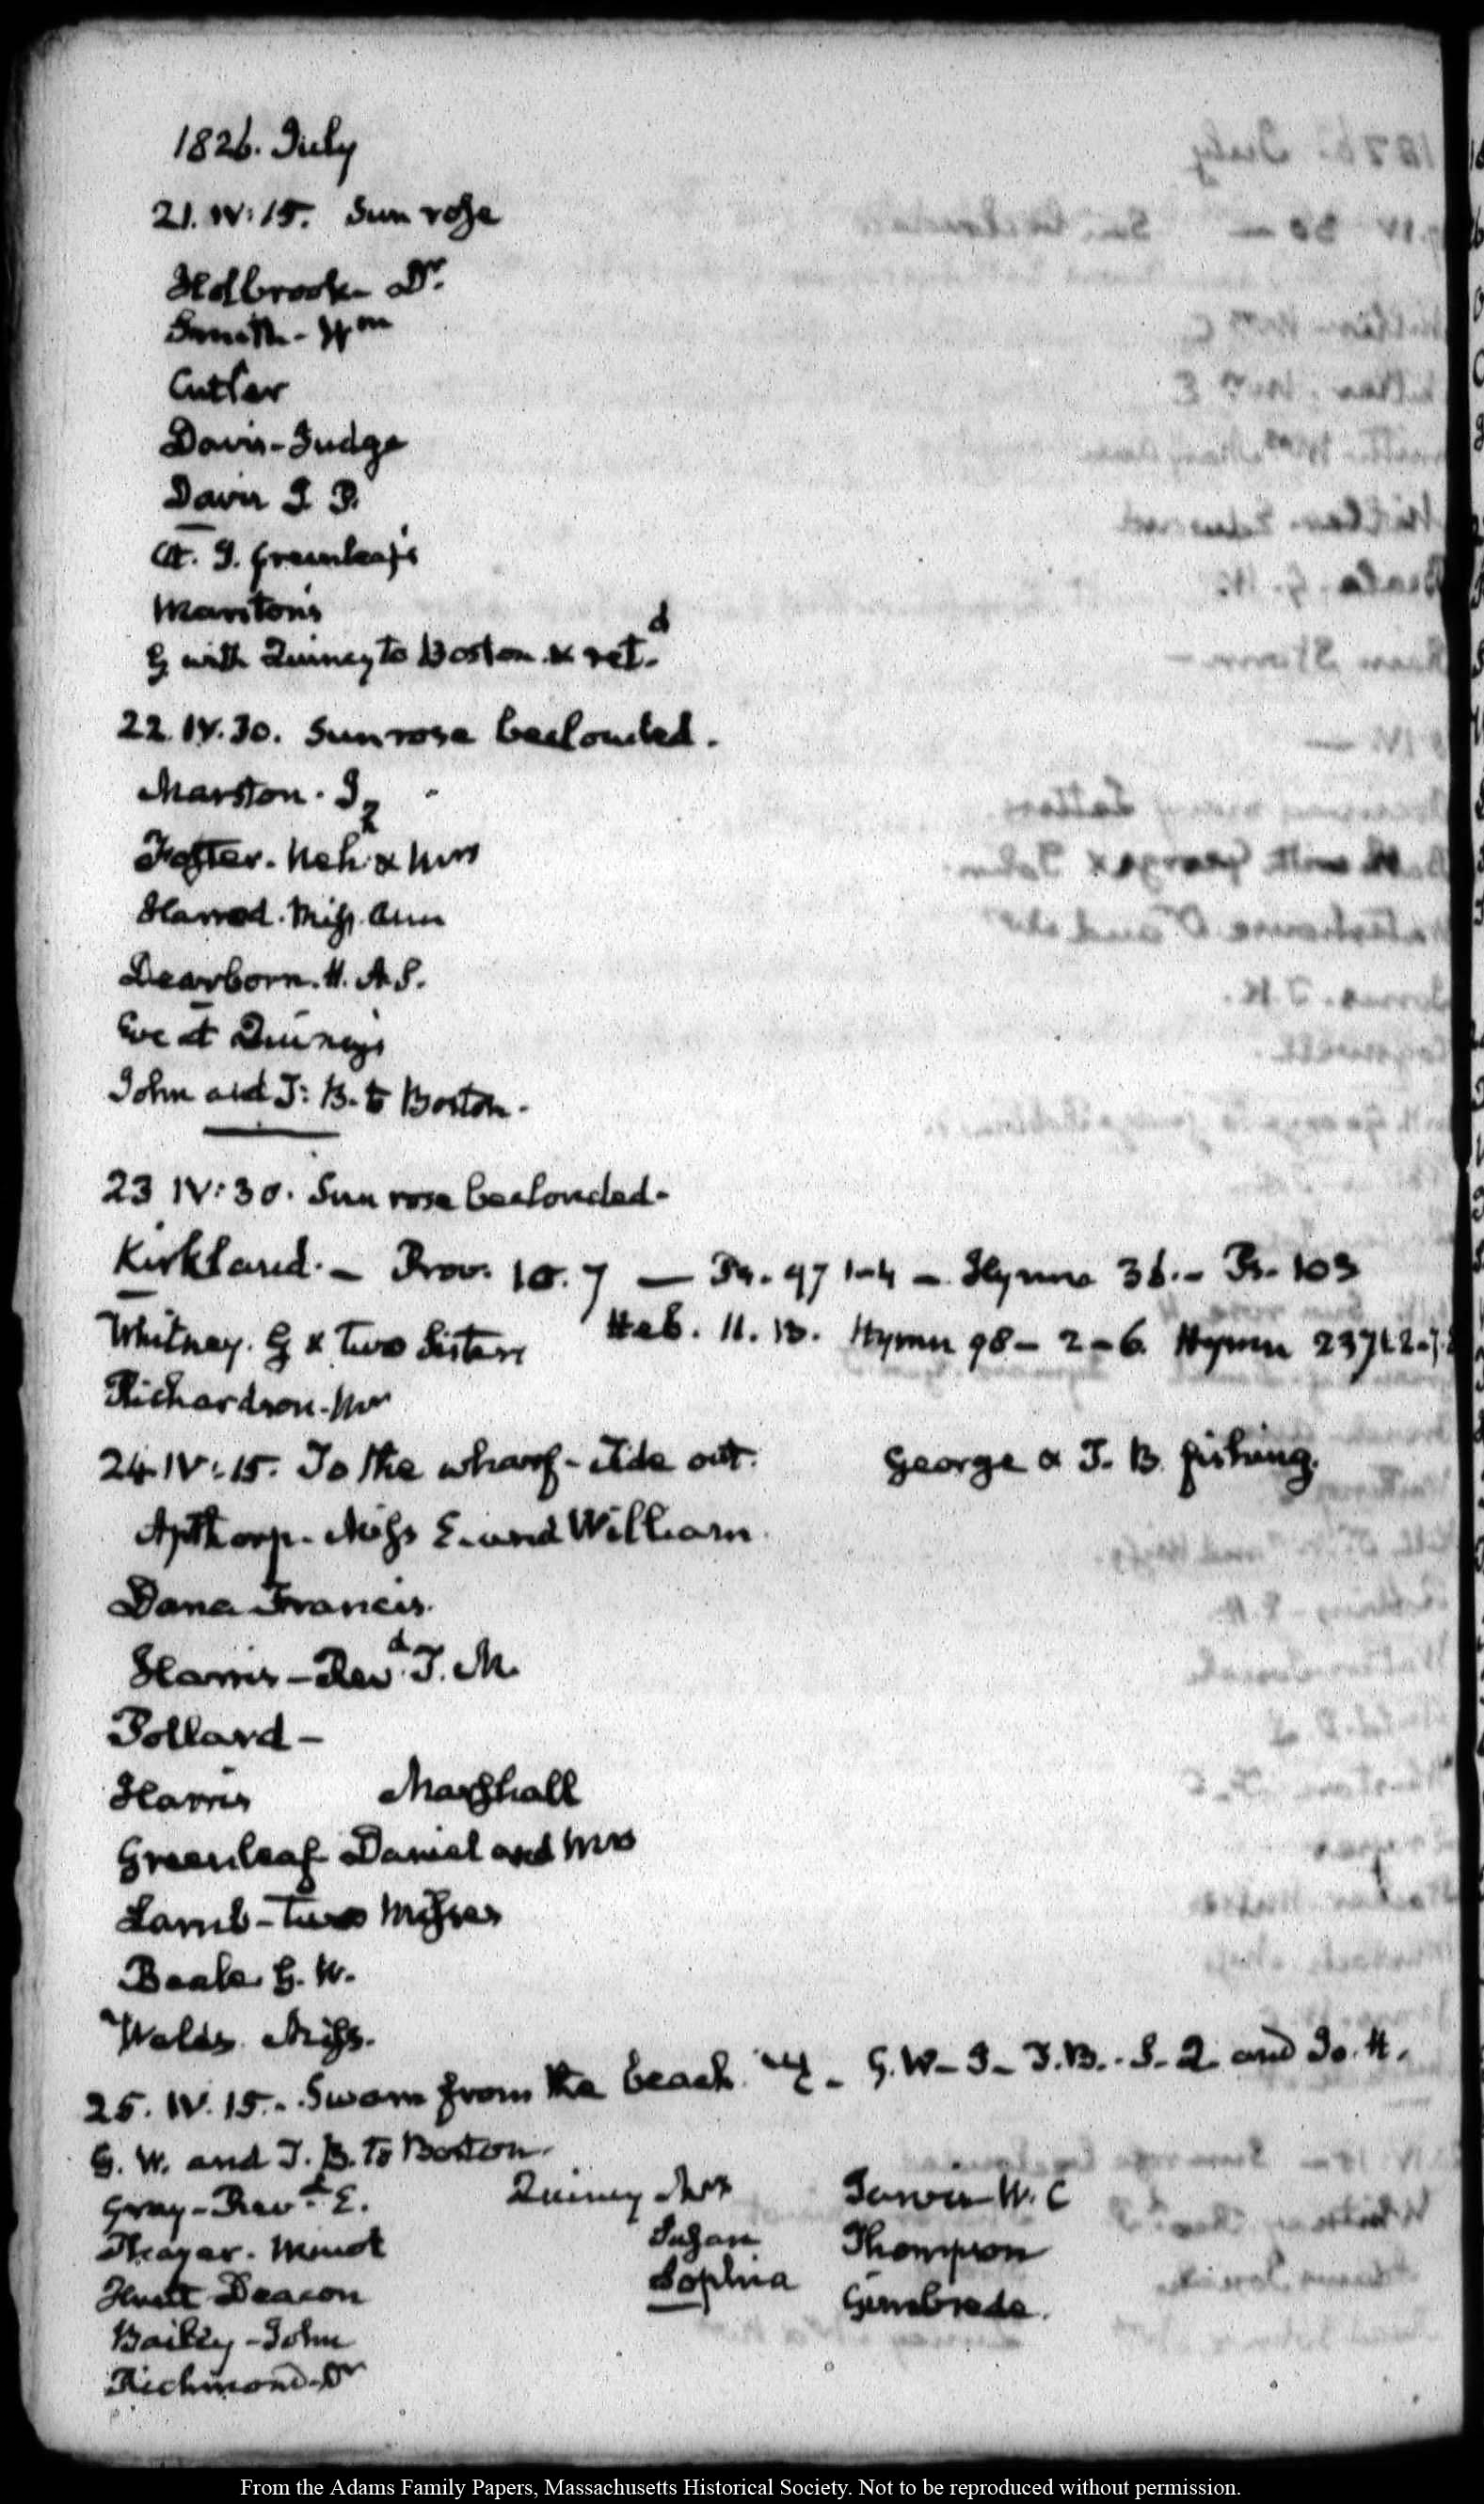 1826. July
21. IV: 15. Sun rose
Holbrook Dr.
Smith - Wm
Cutler
Davis - Judge
Davis I. P.
At. J. Greenleaf's
Marston's
G with Quincy to Boston & ret.d
22. IV. 30. Sun rose beclouded.
Marston. J
Foster. Neh & Mrs
Harrod. Miss Ann
Dearborn. H. A. S.
Eve at Quincy's
John and T: B. to Boston.
23 IV: 30. Sun rose beclouded.
Kirkland. — Prov. 10. 7 — Ps. 97 1-4 — Hymn 36. - Ps. 103
Whitney. G & two Sisters Heb. 11. 13. Hymn 98 - 2 - 6. Hymn 237
Richardson. Mr
24. IV: 15. To the wharf - tide out. George & T. B. fishing.
Apthorp. Miss E. and William.
Dana Francis.
Harris - Revd. T. M.
Pollard -
Harris Marshall
Greenleaf Daniel and Mrs
Lamb - two Misses
Beale G. W.
Welds. Miss.
25. IV. 15. - Swam from the beach. - G. W - J - T. B. - J - Q. and Jo. H.
G. W. and T. B. to Boston.
Gray - Revd. E. Quincy Mrs W. C
Thayer. Minot Susan Thompson
Deacon Sophia Gimbrede.
Bailey - John
Richmond - Dr
From the Adams Family Papers, Massachusetts Historical Society. Not to be reproduced without permission.